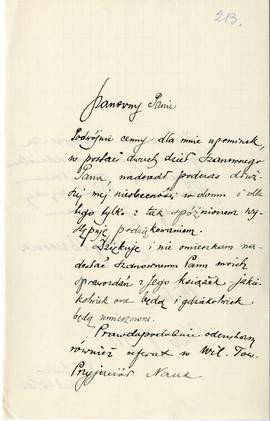 213.
Szanowny Panie
Podwójnie cenny dla mnie upominek,
w postaci dwóch dzieł Szanownego
Pana, nadszedł podczas dłuż-
szej mej nieobecności w domu i dla
tego tylko z tak spóźnionem wy-
stępuję podziękowaniem.
Dziękuję i nie omieszkam na-
desłać Szanownemu Panu moich
sprawozdań z Jego książek jakie-
kolwiek one będą i gdziekolwiek
będą umieszczone.
Prawdopodobnie odczytam
również referat w Wil. Tow.
Przyjaciół Nauk